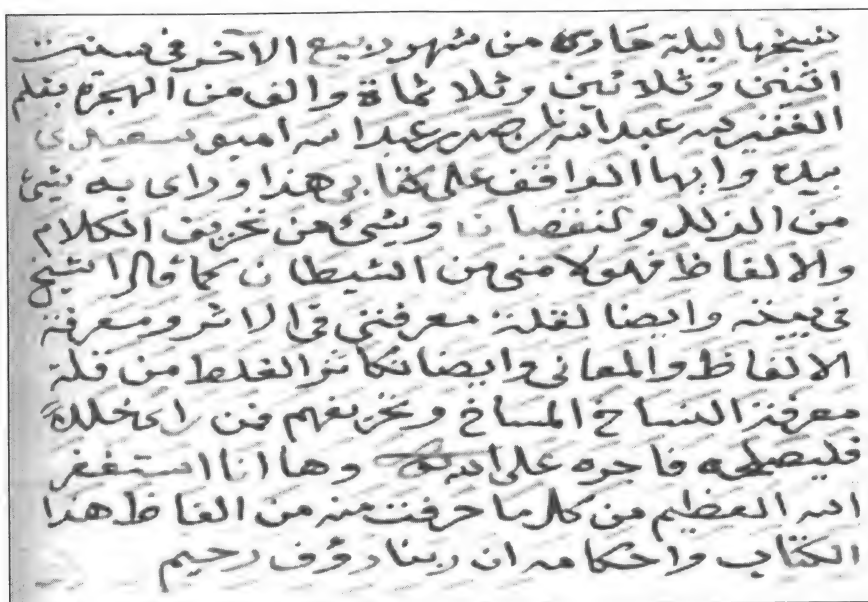 نسخها ليلة حادى من شهر ربيع الآخر في سنت
اثنين وثلاثين وثلاثماة والف من الهجرة بقلم
الفقير لله عبد الله بن عبد الله امبو سعيدي
بيده وايها الواقف على كتابي هذا وراى به شئ
من الزلل ونقصان وشئ من تحريف الكلام
والالفاظ فهو لا منى من الشيطان كما قال الشيخ
في بيته وايضا لقلة معرفتي في الاثر ومعرفة
الالفاظ والمعاني وايضا تكاثر الغلط من قلة
معرفة النساخ المساخ وتحريفهم فمن راى خللا
فليصلحه فاجره على الله وها انا استغفر
الله العظيم من كل ما حرفت منه من الفاظ هذا
الكتاب واحكامه ان ربنا رؤف رحيم